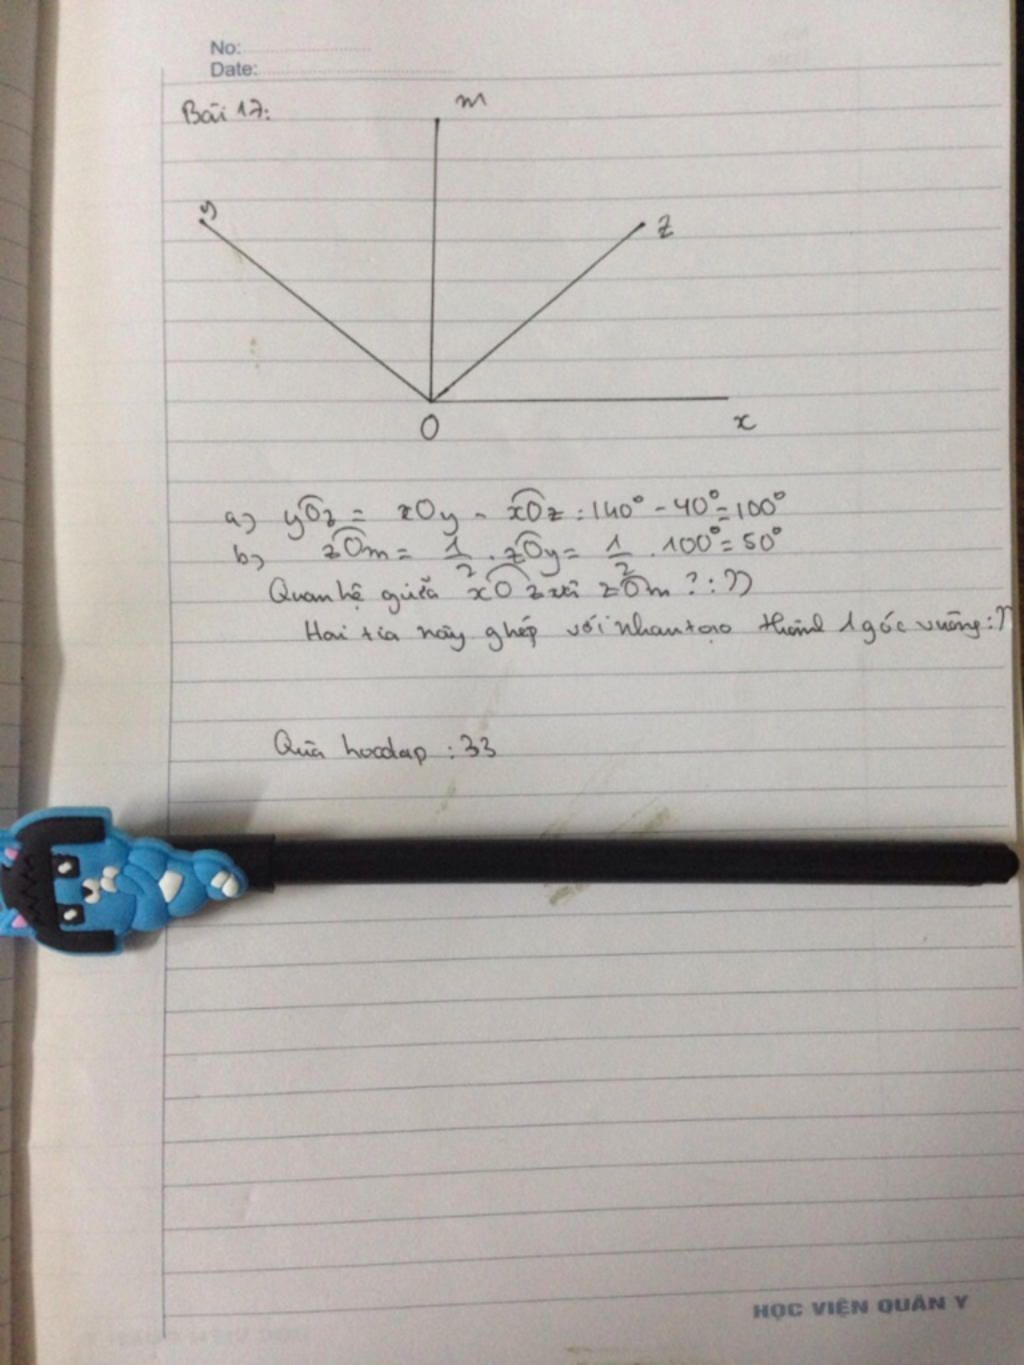 No:
Date:
Bài 17:
m
y
z
O
x
a) yOz = xOy - xOz = 140° - 40° = 100°
b) zOm = 1/2 . zOy = 1/2 . 100° = 50°
Quan hệ giữa xOz với zOm ? :))
Hai tia này ghép với nhau tạo thành 1 góc vuông :)
: 33
HỌC VIỆN QUÂN Y